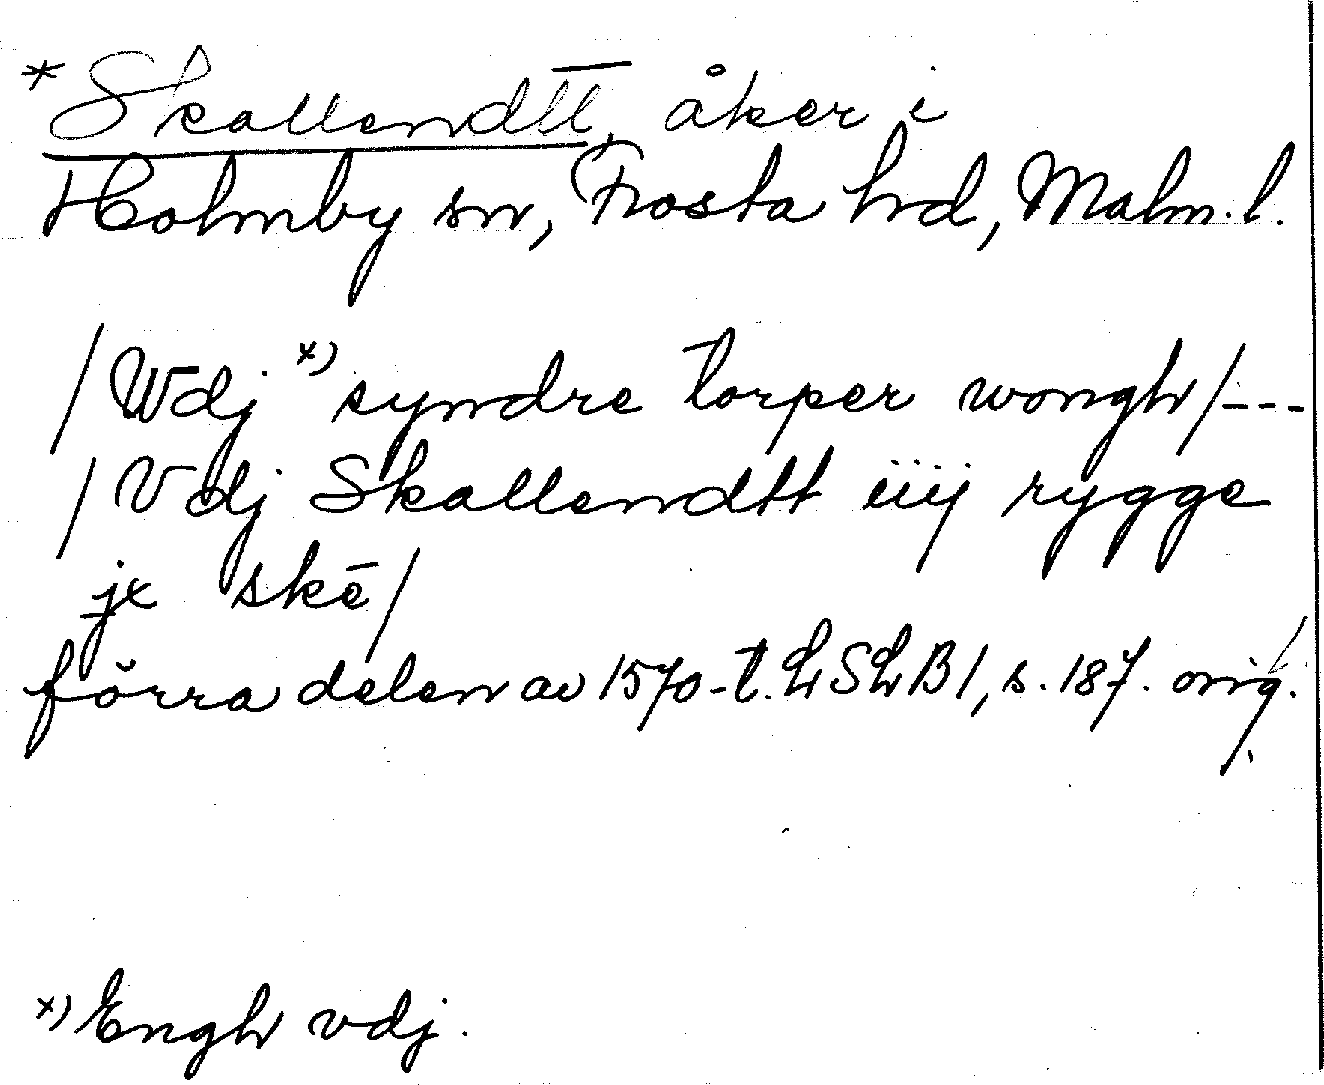 *Skallendtt, åker i
Holmby sn, Frosta hd, Malm. l.
/Wdj x) syndre torper wongh/---
/Vdj Skallendtt iiij rygge
jx skē/
förra delen av 1570-t. LSLB1, s. 187. orig.
x) Engh vdj.